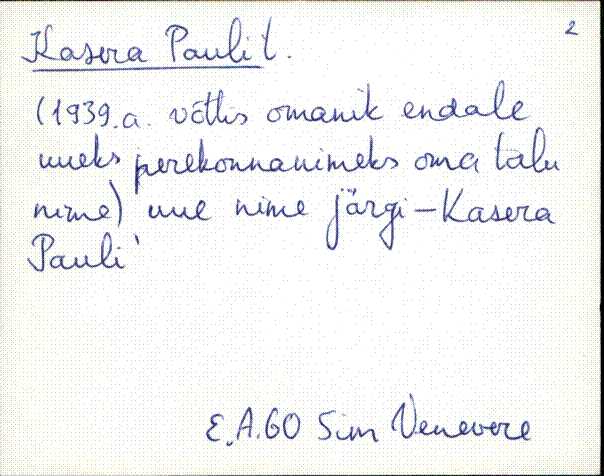 2
Kasera Pauli t.
(1939.a. võttis omanik endale
uueks perekonnanimeks oma talu
nime) uue nime järgi – Kasera
Pauli'
E.A.60 Sim Venevere